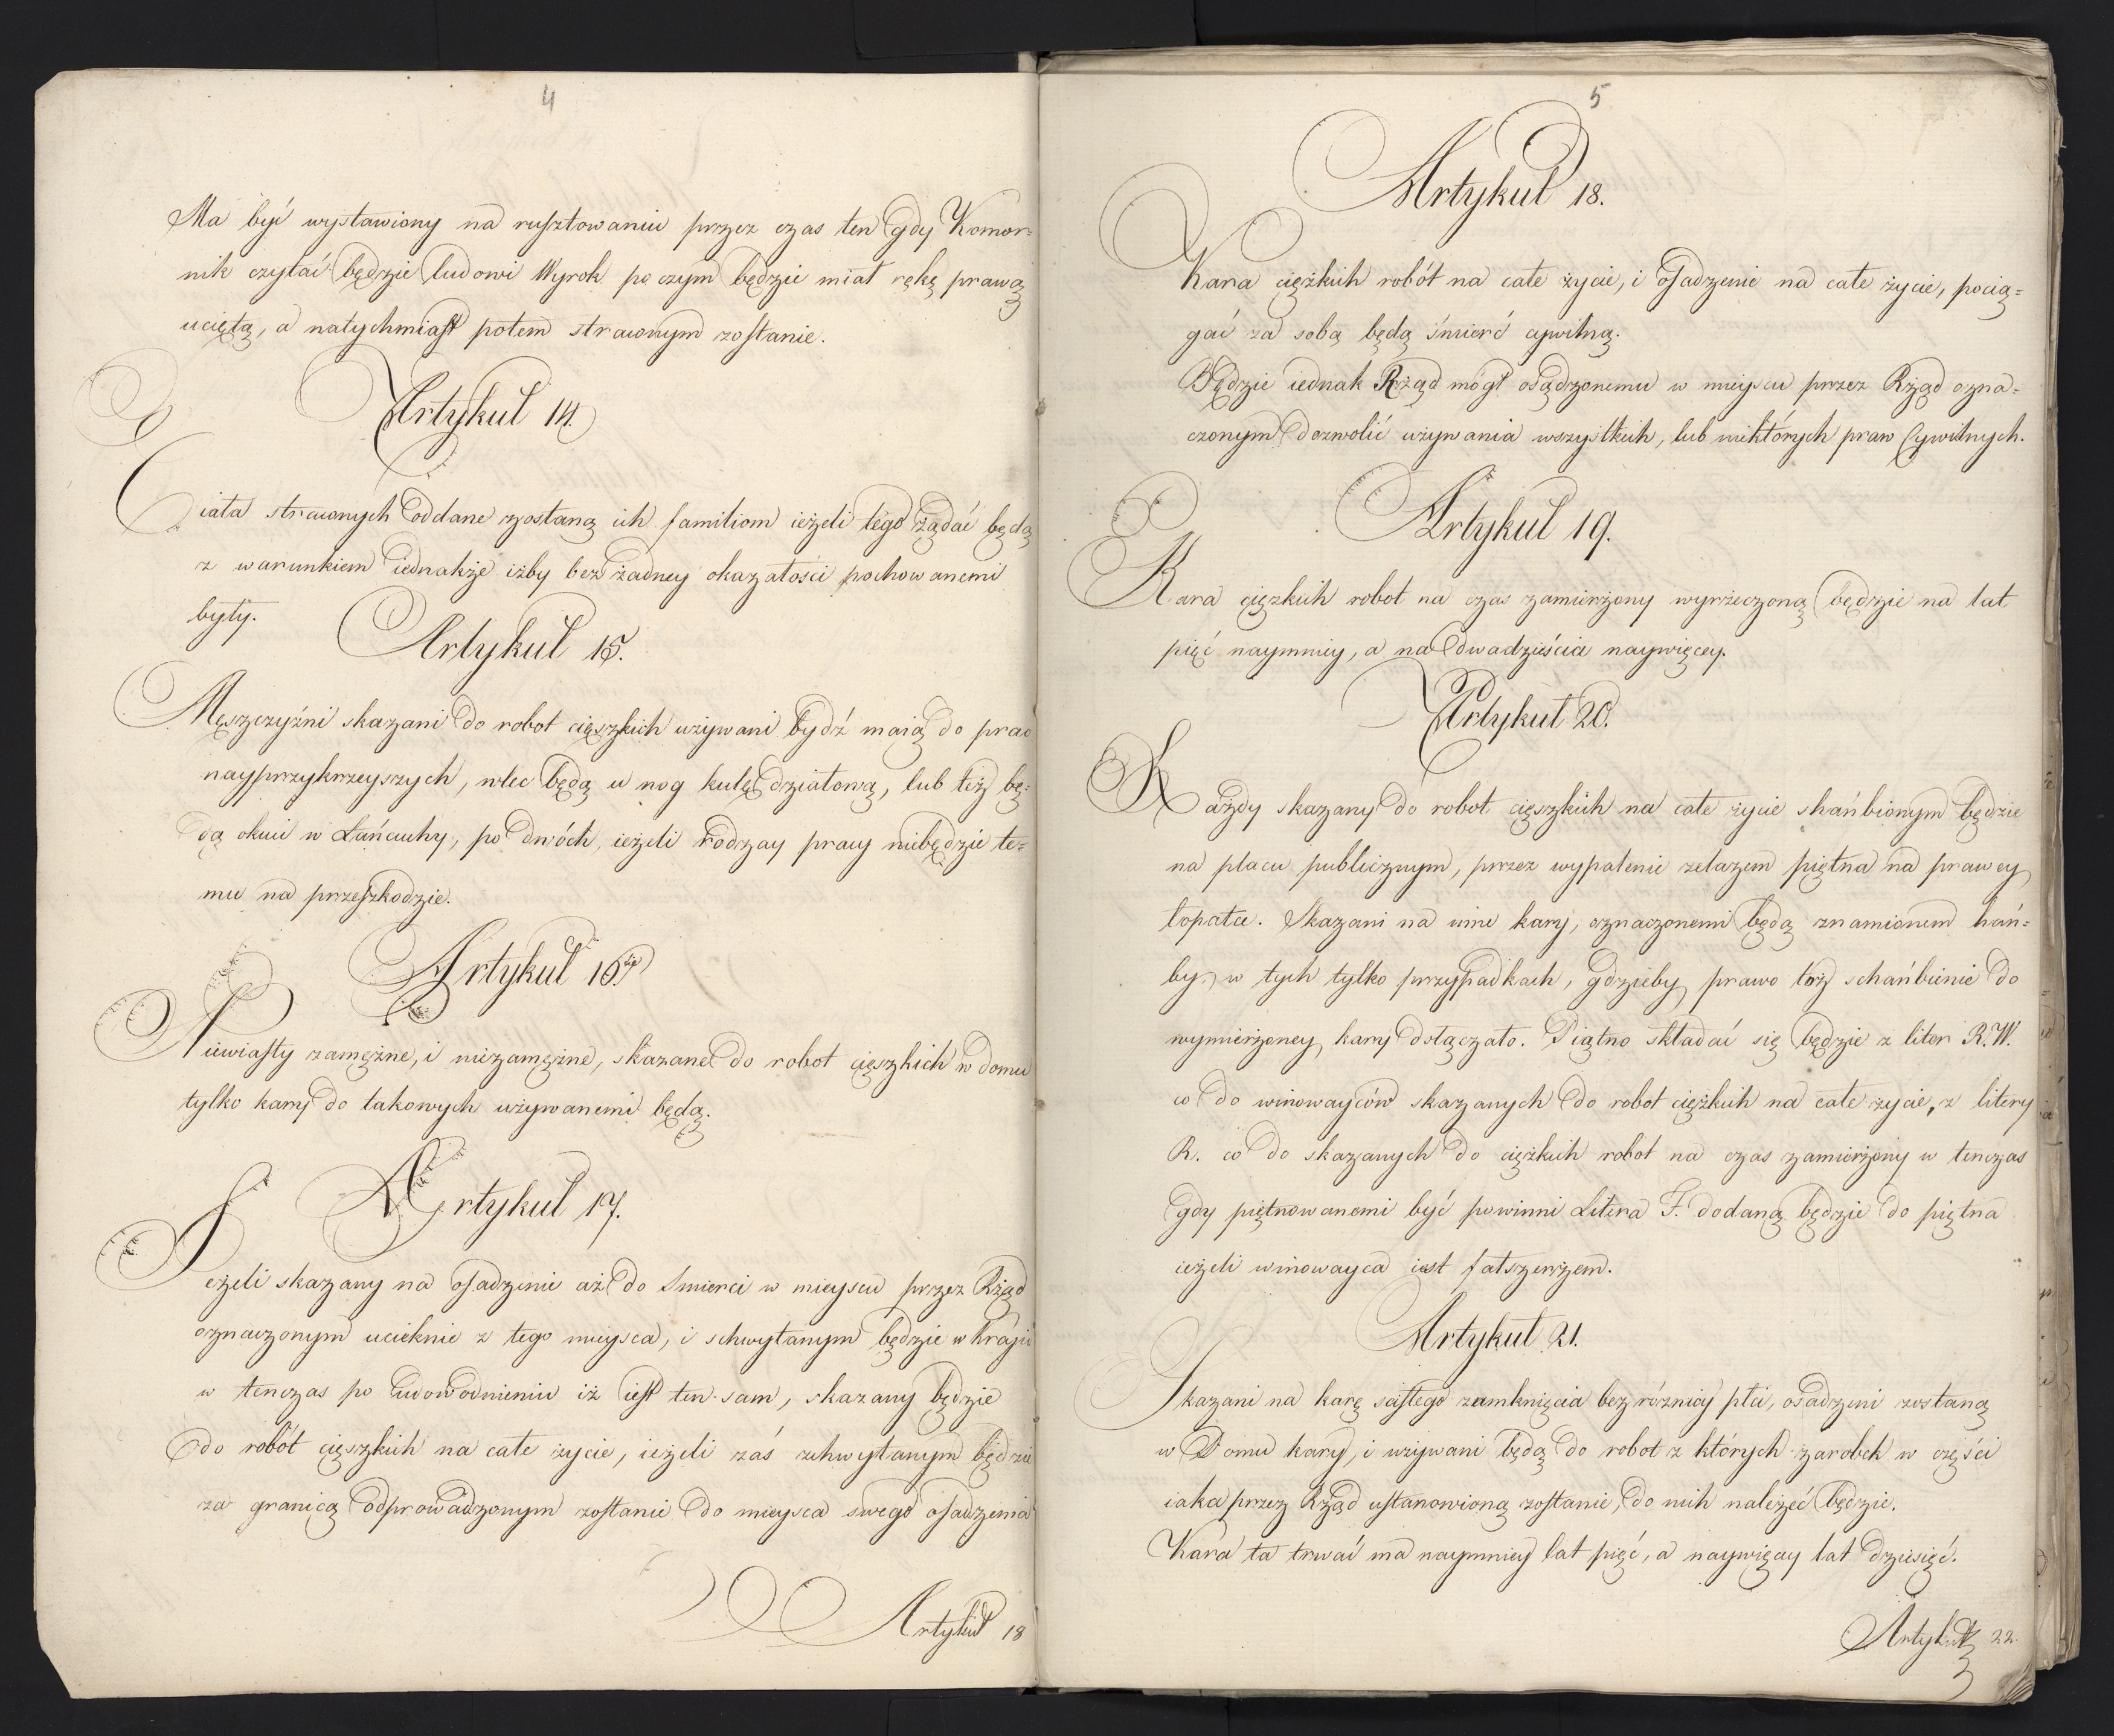 4
Ma być wystawiony na rusztowaniu przez czas ten gdy Komor=
nik czytać będzie ludowi Wyrok po czym będzie miał rękę prawą
uciętą, a natychmiast potem straconym zostanie.
Artykuł 14.
Ciała straconych oddane zostaną ich familiom ieżeli tego żądać będą
z warunkiem iednakże iżby bez żadney okazałości pochowanemi
były.
Artykuł 15.
Męszczyźni skazani do robot cięszkich używani bydź maią do prac
nayprzykrzeyszych, wlec będą u nog kulę działową, lub też bę=
dą okuci w Łańcuchy, po dwóch, ieżeli rodzay pracy niebędzie te=
mu na przeszkodzie.
Artykuł 16.ty
Niewiasty zamężne, i niezamężne, skazane do robot cięszkich w domu
tylko kary do takowych używanemi będą.
Artykuł 17.
Jeżeli skazany na osadzenie aż do Smierci w mieyscu przez Rząd
oznaczonym ucieknie z tego mieysca, i schwytanym będzie w kraju
w tenczas po udowodnieniu iż iest ten sam, skazany będzie
do robót cięszkich na całe życie, ieżeli zaś schwytanym będzie
za granicą odprowadzonym zostanie do mieysca swego osadzenia
Artykuł 18
5
Artykuł 18.
Kara ciężkich robót na całe życie, i osadzenie na całe życie, pocią=
gać za sobą będą śmierć cywilną.
Będzie iednak Rząd mógł osądzonemu w mieyscu przez Rząd ozna=
czonym dozwolić używania wszystkich, lub niektórych praw Cywilnych.
Artykuł 19.
Kara ciężkich robot na czas zamierzony wyrzeczoną będzie na lat
pięć naymniey, a na dwadzieścia naywięcey.
Artykuł 20.
Każdy skazany do robot cięszkich na całe życie shańbionym będzie
na placu publicznym, przez wypalenie żelazem piętna na prawey
łopatce. Skazani na inne kary, oznaczonemi będą znamionem hań=
by, w tych tylko przypadkach, gdzieby prawo toż schańbienie do
wymierzoney kary dołączało. Piątno składać się będzie z liter R.W.
co do winowayców skazanych do robot ciężkich na całe życie, z litery
R. co do skazanych do ciężkich robot na czas zamierzony w tenczas
gdy piętnowanemi być powinni Litera F. dodaną będzie do piętna
ieżeli winowayca iest fałszerzem.
Artykuł 21.
Skazani na karę scisłego zamknięcia bez różnicy płci, osadzeni zostaną
w Domu kary, i używani będą do robot z których zarobek w części
iaka przez Rząd ustanowioną zostanie, do nich należeć będzie.
Kara ta trwać ma naymniey lat pięć, a naywięcey lat dziesięć.
Artykuł 22.